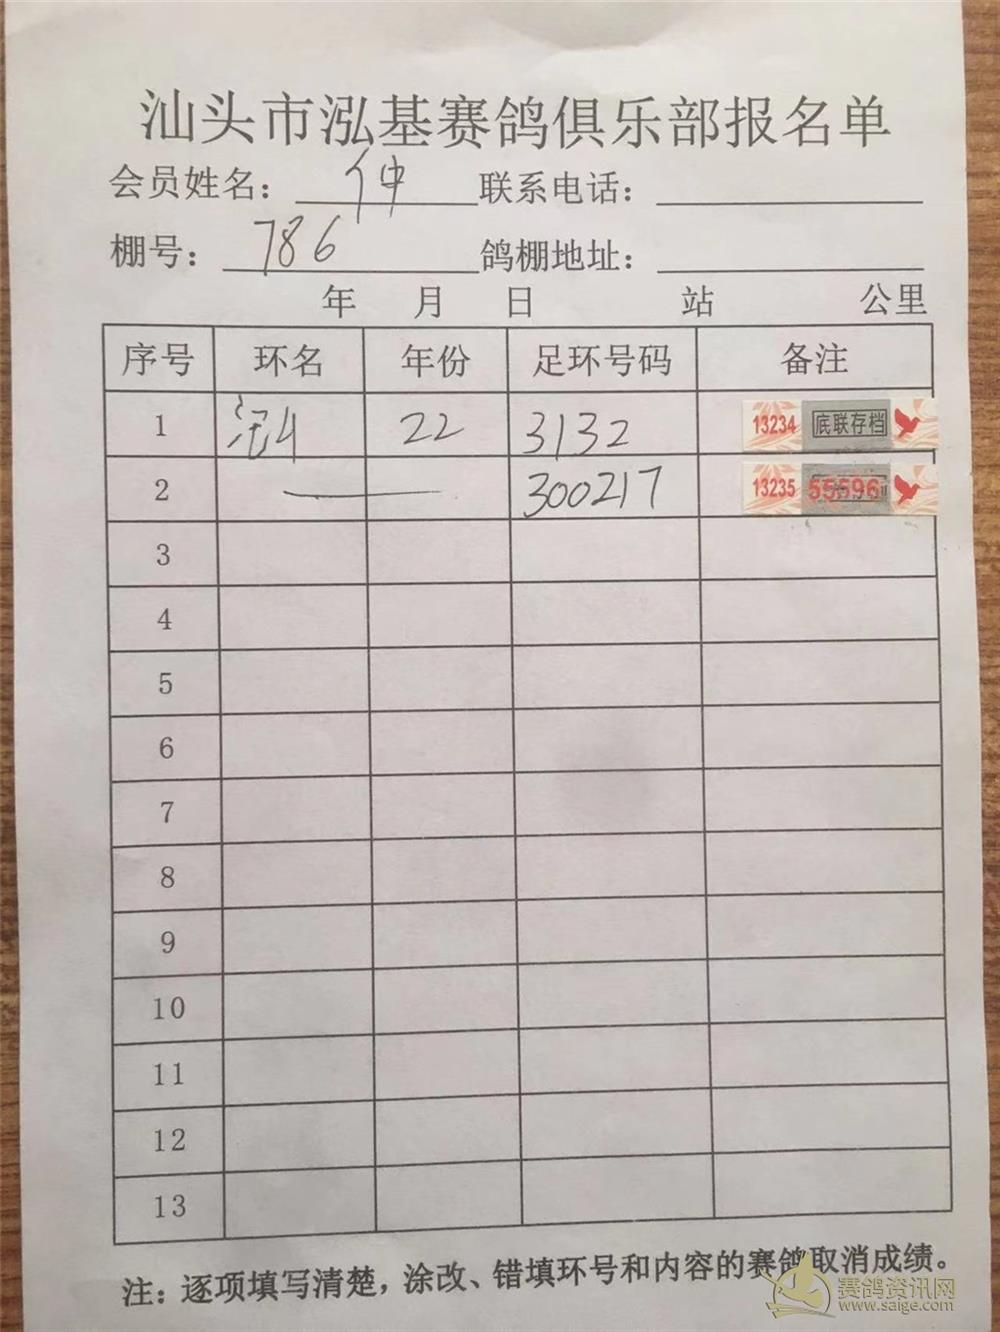 汕头市泓基赛鸽俱乐部报名单
会员姓名： 仲 联系电话：
棚号： 786 鸽棚地址：
年 月 日 站 公里
序号 环名 年份 足环号码 备注
1 22 3132 13234 底联存档
2 300217 13235 55596
3
4
5
6
7
8
9
10
11
12
13
注：逐项填写清楚，涂改、错填环号和内容的赛鸽取消成绩。
赛鸽资讯网
www.saige.com